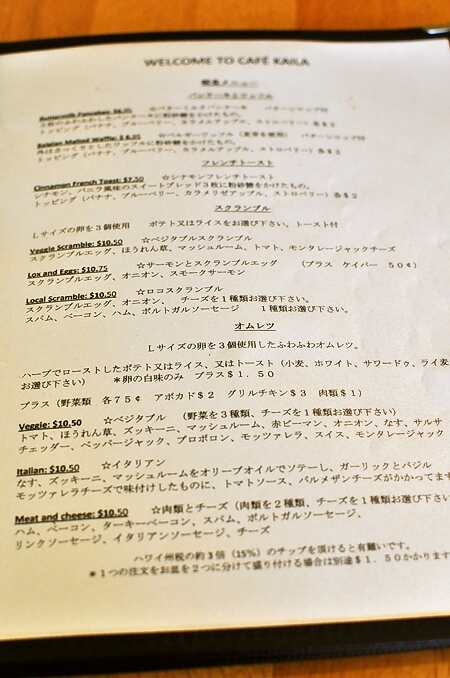 WELCOME TO CAFÉ KAILA
朝食メニュー
パンケーキとワッフル
Buttermilk Pancakes: $6.95 ☆バターミルクパンケーキ バターシロップ付
トッピング(バナナ、ブルーベリー、カラメルアップル、ストロベリー)各$2
Belgian Malted Waffle: ☆ベルギーワッフル(麦芽を使用) バターシロップ付
外はさっくりとしたワッフルに粉砂糖をかけたもの。
トッピング(バナナ、ブルーベリー、カラメルアップル、ストロベリー)各$2
フレンチトースト
Cinnamon French Toast: $7.50 ☆シナモンフレンチトースト
シナモン、バニラ風味のスイートブレッド3枚に粉砂糖をかけたもの。
トッピング(バナナ、ブルーベリー、カラメリゼアップル、ストロベリー)各$2
スクランブル
Lサイズの卵を3個使用 ポテト又はライスをお選び下さい。トースト付
Veggie Scramble: $10.50 ☆ベジタブルスクランブル
スクランブルエッグ、ほうれん草、マッシュルーム、トマト、モンタレージャックチーズ
Lox and Eggs: $10.75 ☆サーモンとスクランブルエッグ (プラス ケイパー 50¢)
スクランブルエッグ、オニオン、スモークサーモン
Local Scramble: $10.50 ☆ロコスクランブル
スクランブルエッグ、オニオン、 チーズを1種類お選び下さい。
スパム、ベーコン、ハム、ポルトガルソーセージ 1種類お選び下さい。
オムレツ
Lサイズの卵を3個使用したふわふわオムレツ。
ハーブでローストしたポテト又はライス、又はトースト(小麦、ホワイト、サワードゥ、ライ麦
お選び下さい) *卵の白味のみ プラス$1.50
プラス(野菜類 各75¢ アボカド$2 グリルチキン$3 肉類$1)
Veggie: $10.50 ☆ベジタブル (野菜を3種類、チーズを1種類お選び下さい)
トマト、ほうれん草、ズッキーニ、マッシュルーム、赤ピーマン、オニオン、なす、サルサ
チェッダー、ペッパージャック、プロボロン、モッツァレラ、スイス、モンタレージャック
Italian: $10.50 ☆イタリアン
なす、ズッキーニ、マッシュルームをオリーブオイルでソテーし、ガーリックとバジル
モッツァレラチーズで味付けしたものに、トマトソース、パルメザンチーズがかかってます
Meat and cheese: $10.50 ☆肉類とチーズ(肉類を2種類、チーズを1種類お選び下さい
ハム、ベーコン、ターキーベーコン、スパム、ポルトガルソーセージ、
リンクソーセージ、イタリアンソーセージ、チーズ
ハワイ州税の約3倍(15%)のチップを頂けると有難いです。
*1つの注文をお皿を2つに分けて盛り付ける場合は別途$1.50かかります